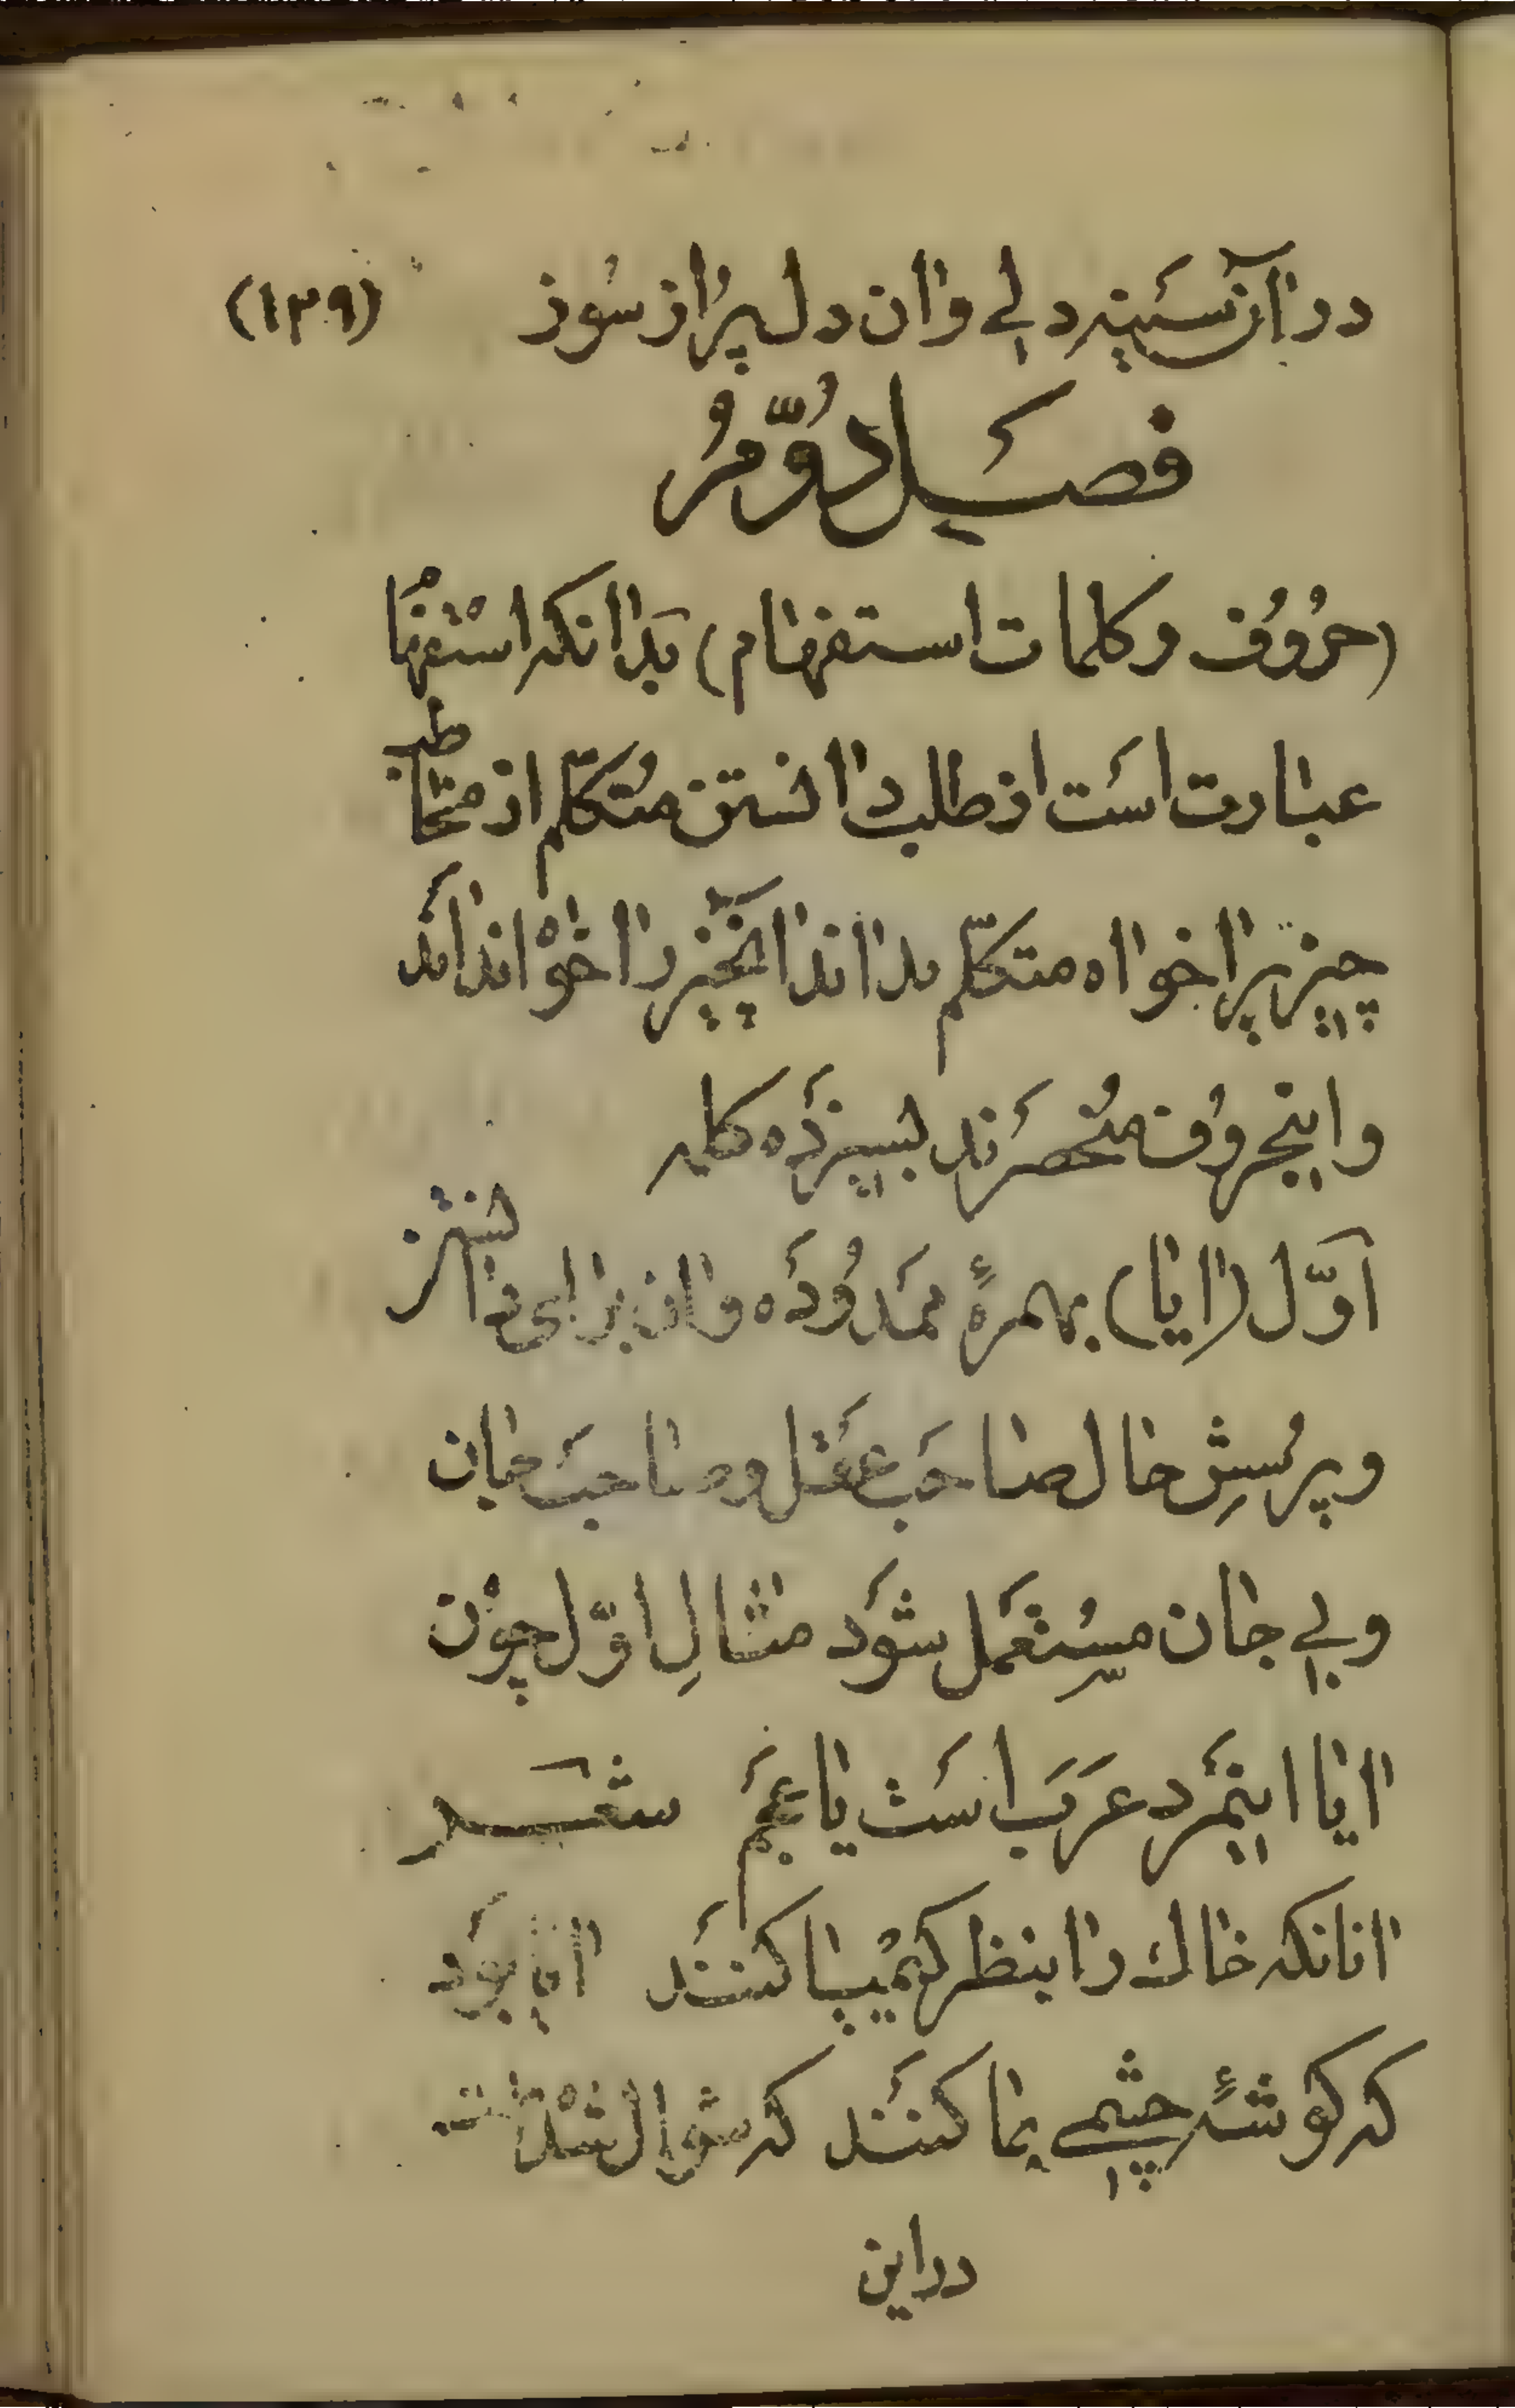 در آن سینه دلی وان دل پر از سوز (۱۳۹)
فصل دوم
(حروف و کلمات استفهام) بدانکه استفهام
عبارت است از طلب دانستن متکلم از مخاطب
چیزیرا خواه متکلم بداند آنچیز را خواه نداند
و اینحروف منحصرند بسیزده کلمه
اوّل (ایا) بهمزهٔ ممدوده وان برای دانستن
و پرسشِ حال صاحب عقل و صاحب جان
و بی جان مستعمل شود مثالِ اوّل چون
ایا اینمرد عرب است یا عجم شعر
انانکه خاك را بنظر کیمیا کنند ایا بود
که کوشهٔ چشمی بما کنند که سؤال شده است
در این